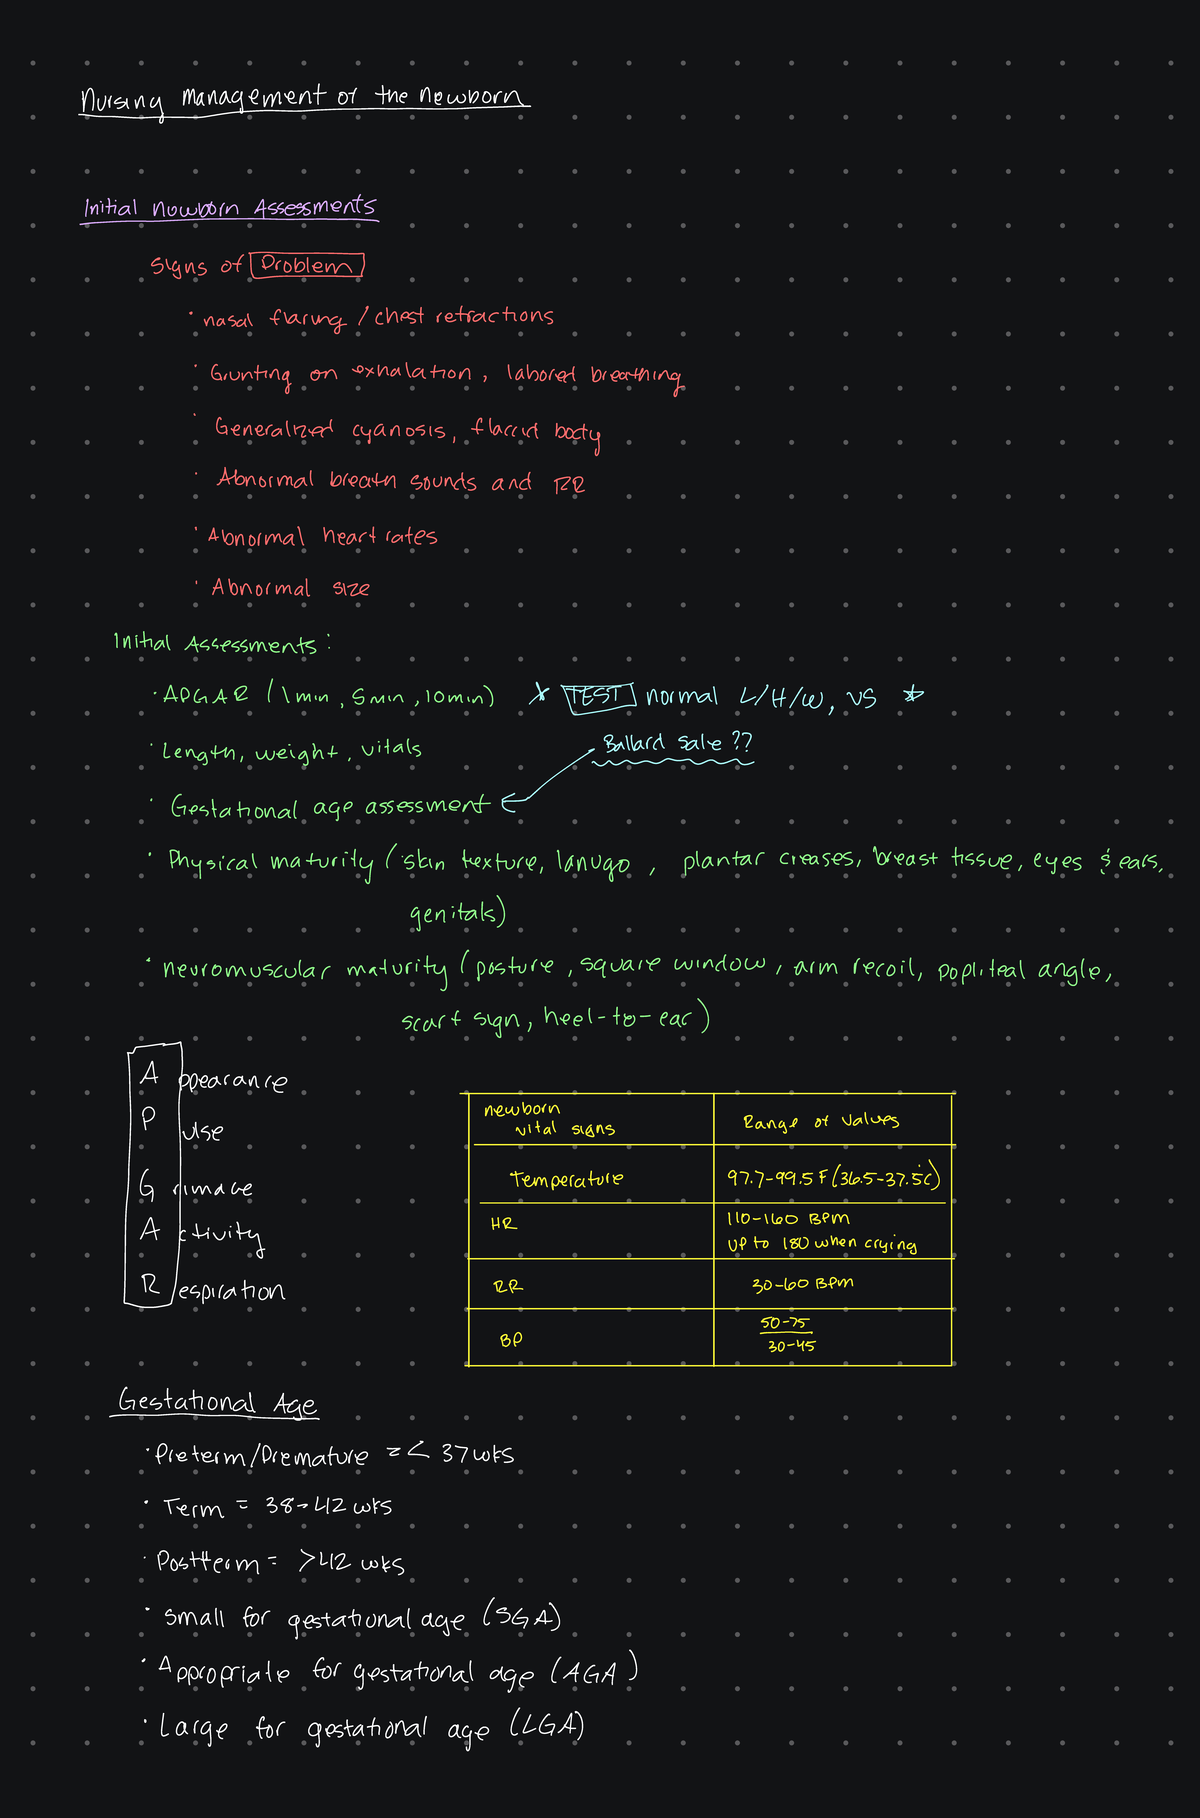 Nursing Management of the Newborn
Initial Newborn Assessments
Signs of Problem
· nasal flaring / chest retractions
· Grunting on exhalation, labored breathing
· Generalized cyanosis, flaccid body
· Abnormal breath sounds and RR
· Abnormal heart rates
· Abnormal size
Initial Assessments:
· APGAR (1min, 5min, 10min) * TEST normal L/H/W, VS *
· Length, weight, vitals
Ballard Sale ??
· Gestational age assessment
· Physical maturity (skin texture, lanugo, plantar creases, breast tissue, eyes & ears,
genitals)
· neuromuscular maturity (posture, square window, arm recoil, popliteal angle,
scarf sign, heel-to-ear)
Appearance
Pulse
Grimace
Activity
Respiration
newborn vital signs | Range of Values
Temperature | 97.7-99.5 F (36.5-37.5°C)
HR | 110-160 BPM
up to 180 when crying
RR | 30-60 BPM
BP | 50-75
30-45
Gestational Age
· Preterm/Premature = < 37 wks
· Term = 38-42 wks
· Postterm = >42 wks
· Small for gestational age (SGA)
· Appropriate for gestational age (AGA)
· Large for gestational age (LGA)